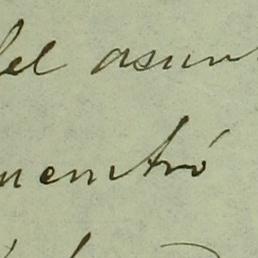 del asun
uentró